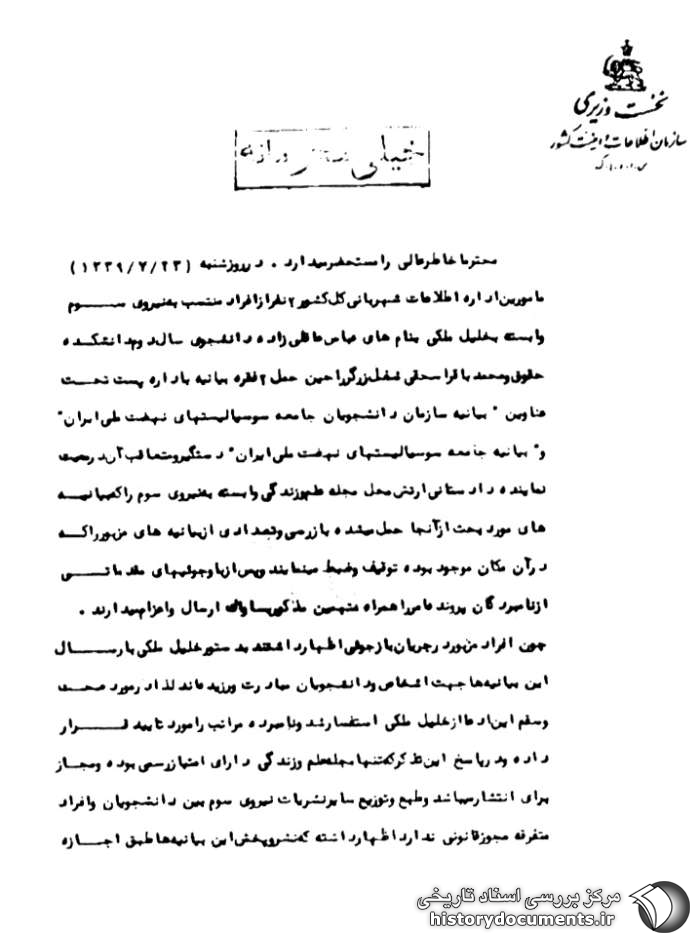 نخست وزیری
سازمان اطلاعات و امنیت کشور
س.ا.و.ا.ک
خیلی محرمانه
محترما خاطرعالی را مستحضر میدارد . در روز شنبه (۱۳۳۹/۷/۲۳)
مامورین اداره اطلاعات شهربانی کل کشور ۲ نفر از افراد منتسب به نیروی سوم
وابسته بخلیل ملکی بنام های عباس عاقلی زاده دانشجوی سال دوم دانشکده
حقوق و محمد باقر اسحقی شغل بزرگر را حین حمل ۲ فقره بیانیه باداره پست تحت
عناوین " بیانیه سازمان دانشجویان جامعه سوسیالیستهای نهضت ملی ایران"
و" بیانیه جامعه سوسیالیستهای نهضت ملی ایران" دستگیر و متعاقب آن در معیت
نماینده دادستانی ارتش محل مجله علم و زندگی وابسته به نیروی سوم را که بیانیه
های مورد بحث از آنجا حمل میشده بازرسی و تعدادی از بیانیه های مزبور را که
در آن مکان موجود بوده توقیف و ضبط مینمایند و پس از بازجوئیهای مقدماتی
از نامبردگان پرونده امر را همراه متهمین مذکور بساواک ارسال و اعزام میدارند .
چون افراد مزبور در جریان بازجوئی اظهار داشتند بدستور خلیل ملکی بارسال
این بیانیه ها جهت اشخاص و دانشجویان مبادرت ورزیده اند لذا در مورد صحت
و سقم این ادعا از خلیل ملکی استفسار شد و نامبرده مراتب را مورد تایید قرار
داده و در پاسخ این تذکر که تنها مجله علم و زندگی دارای امتیاز رسمی بوده و مجاز
برای انتشار میباشد و طبع و توزیع سایر نشریات نیروی سوم بین دانشجویان و افراد
متفرقه مجوز قانونی ندارد اظهار داشته که نشر و پخش این بیانیه ها طبق اجازه
مرکز بررسی اسناد تاریخی
historydocuments.ir